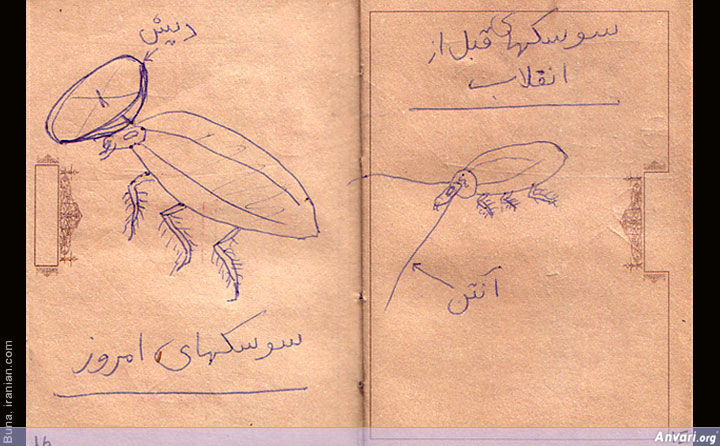 سوسکهای قبل از
انقلاب
آنتن
دیش
سوسکهای امروز
Buna. iranian.com
Anvari.org